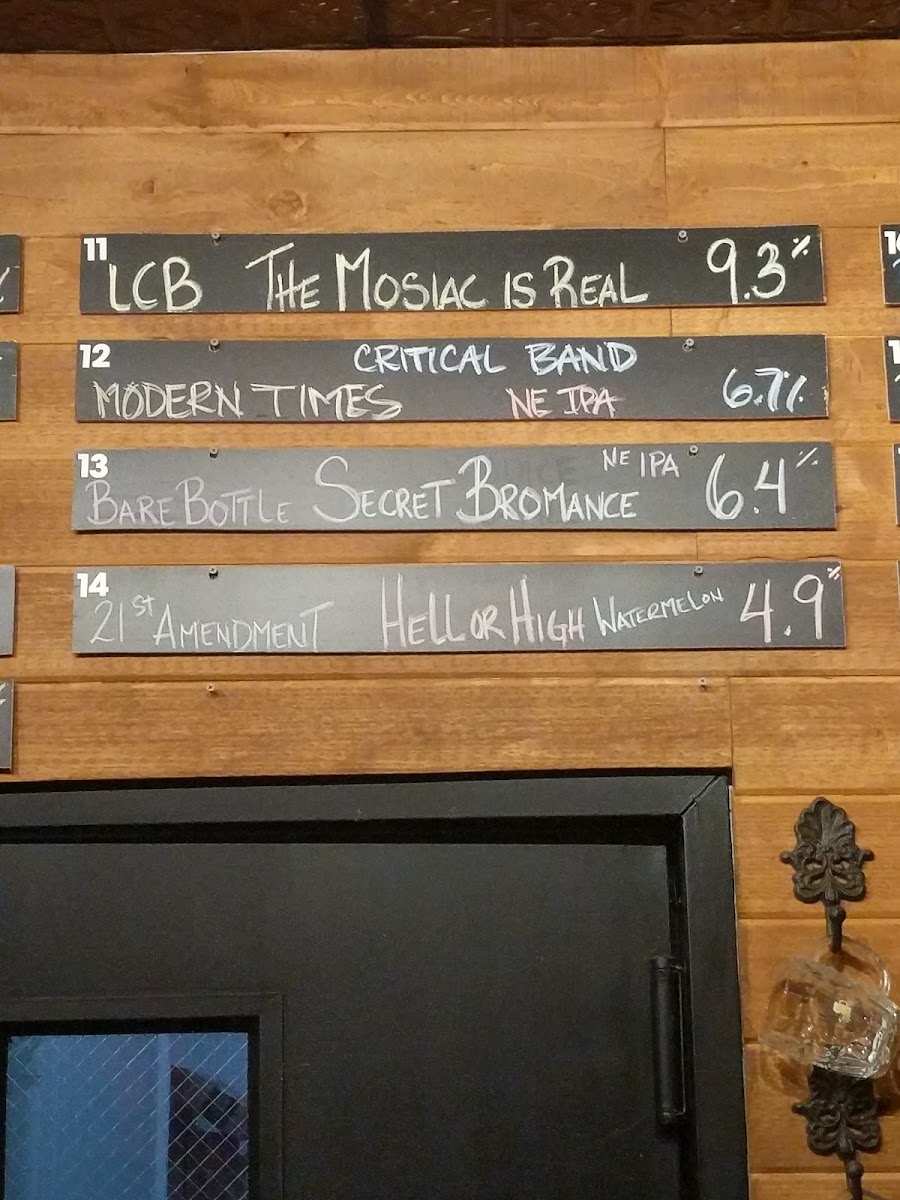 11
LCB THE MOSIAC IS REAL 9.3%
12
CRITICAL BAND
MODERN TIMES NE IPA 6.7%
13
NE IPA
BARE BOTTLE SECRET BROMANCE 6.4%
14
21ST AMENDMENT HELL OR HIGH WATERMELON 4.9%